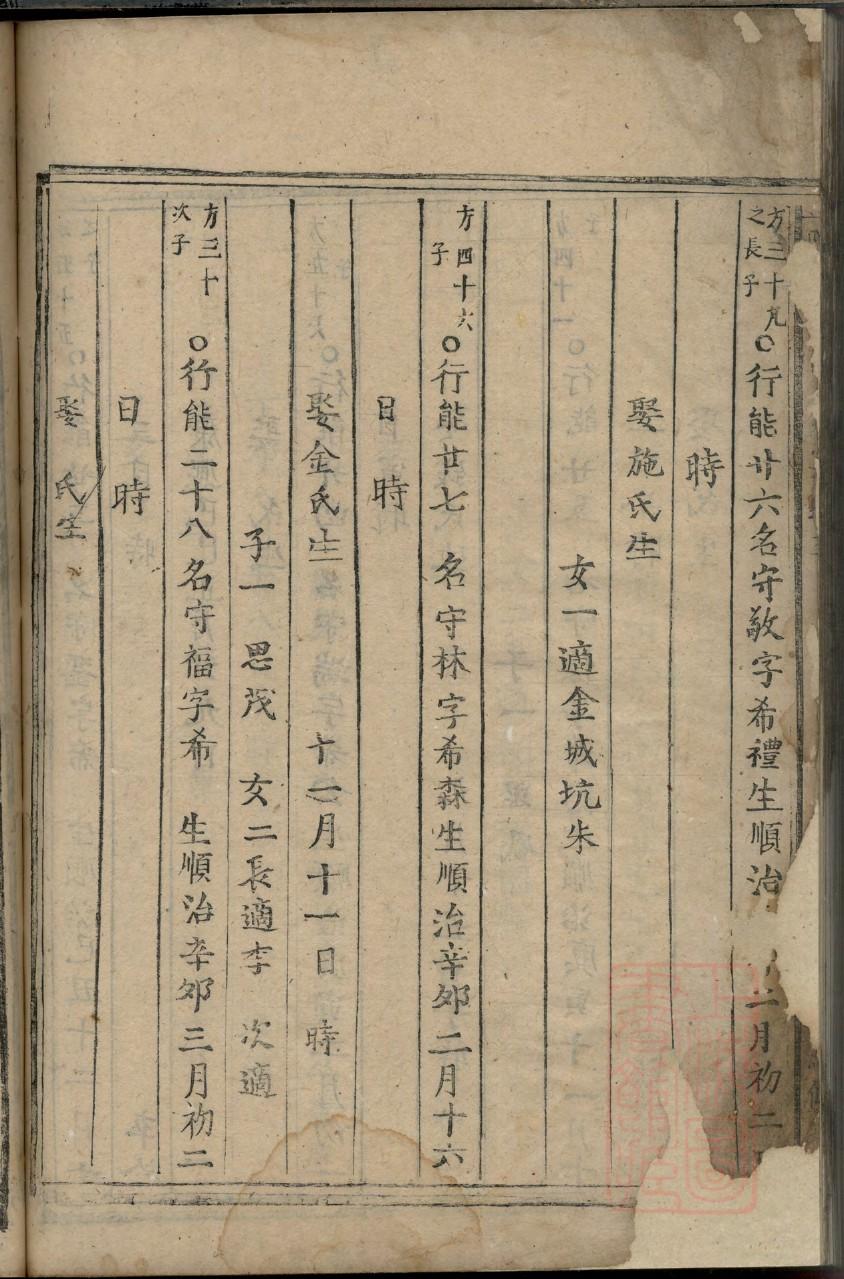 方三十九之長子○行能廿六名守敬字希禮生順治 二月初二
時
娶施氏生
女一適金城坑朱
方四十六子○行能廿七 名守林字希森生順治辛卯二月十六
日 時
娶金氏生 十一月十一日 時
子一 思茂 女二長適李 次適
方三十次子○行能二十八名守福字希 生順治辛卯三月初二
日 時
娶 氏生